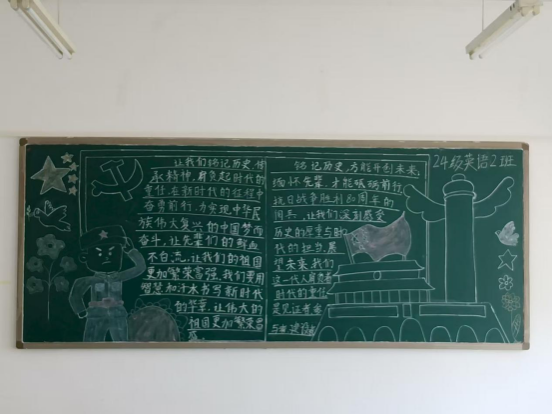 让我们铭记历史,传
承精神,肩负起时代的
重任,在新时代的征程中
奋勇前行,为实现中华民
族伟大复兴的中国梦而
奋斗,让先辈们的鲜血
不白流,让我们的祖国
更加繁荣富强,我们要用
智慧和汗水书写新时代
的华章,让伟大的
祖国更加繁荣富
强
铭记历史,方能开创未来,
缅怀先辈,才能砥砺前行
抗日战争胜利80周年的
让我们深刻感受
历史的厚重与时
代的担当,展
望未来,我们
这一代人肩负着
时代的重任
是见证者
与建设者
24级英语2班